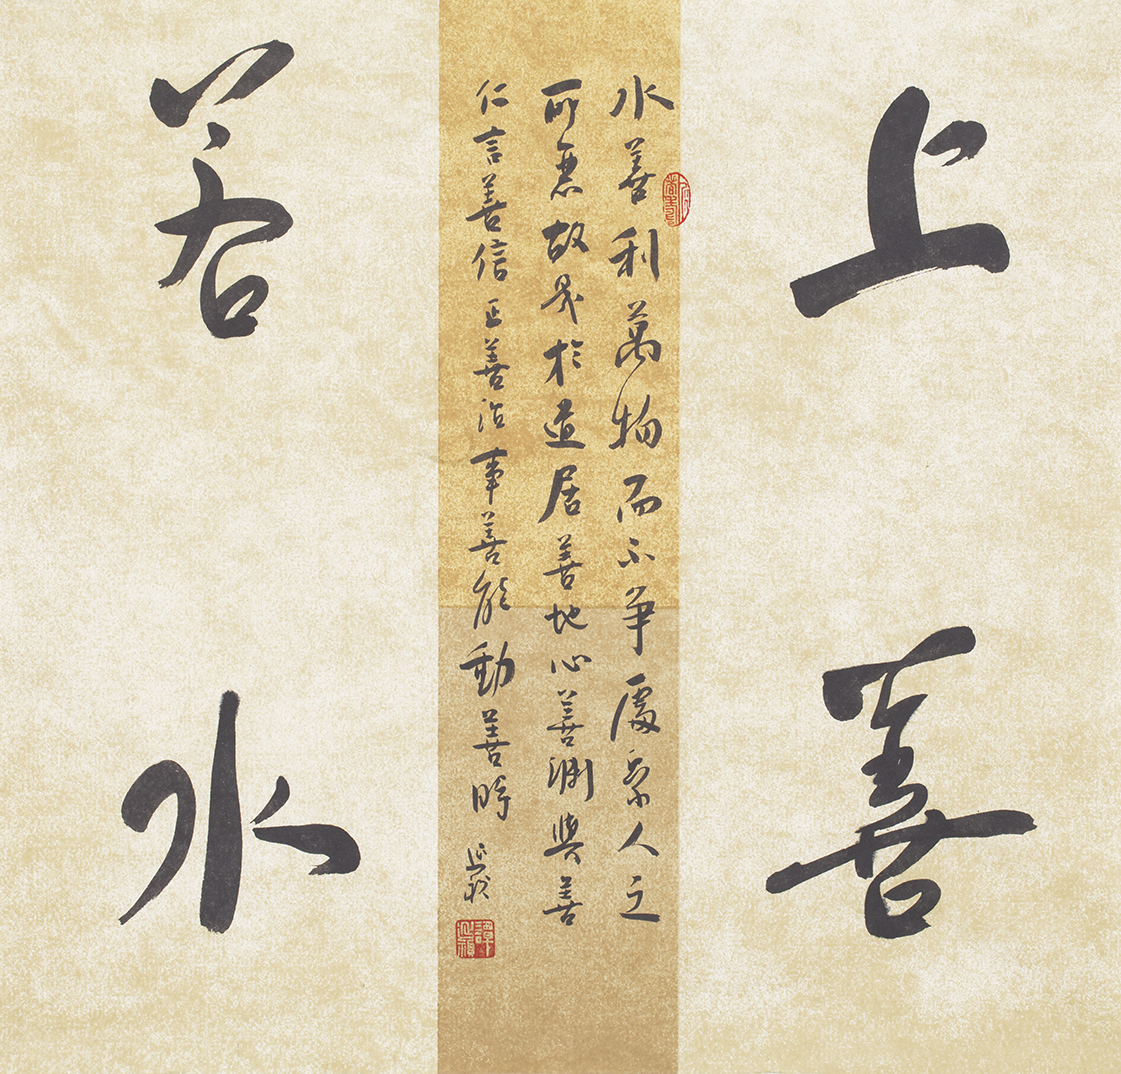 上善
水善利萬物而不争處衆人之
所惡故幾於道居善地心善淵與善
仁言善信正善治事善能動善時
若水